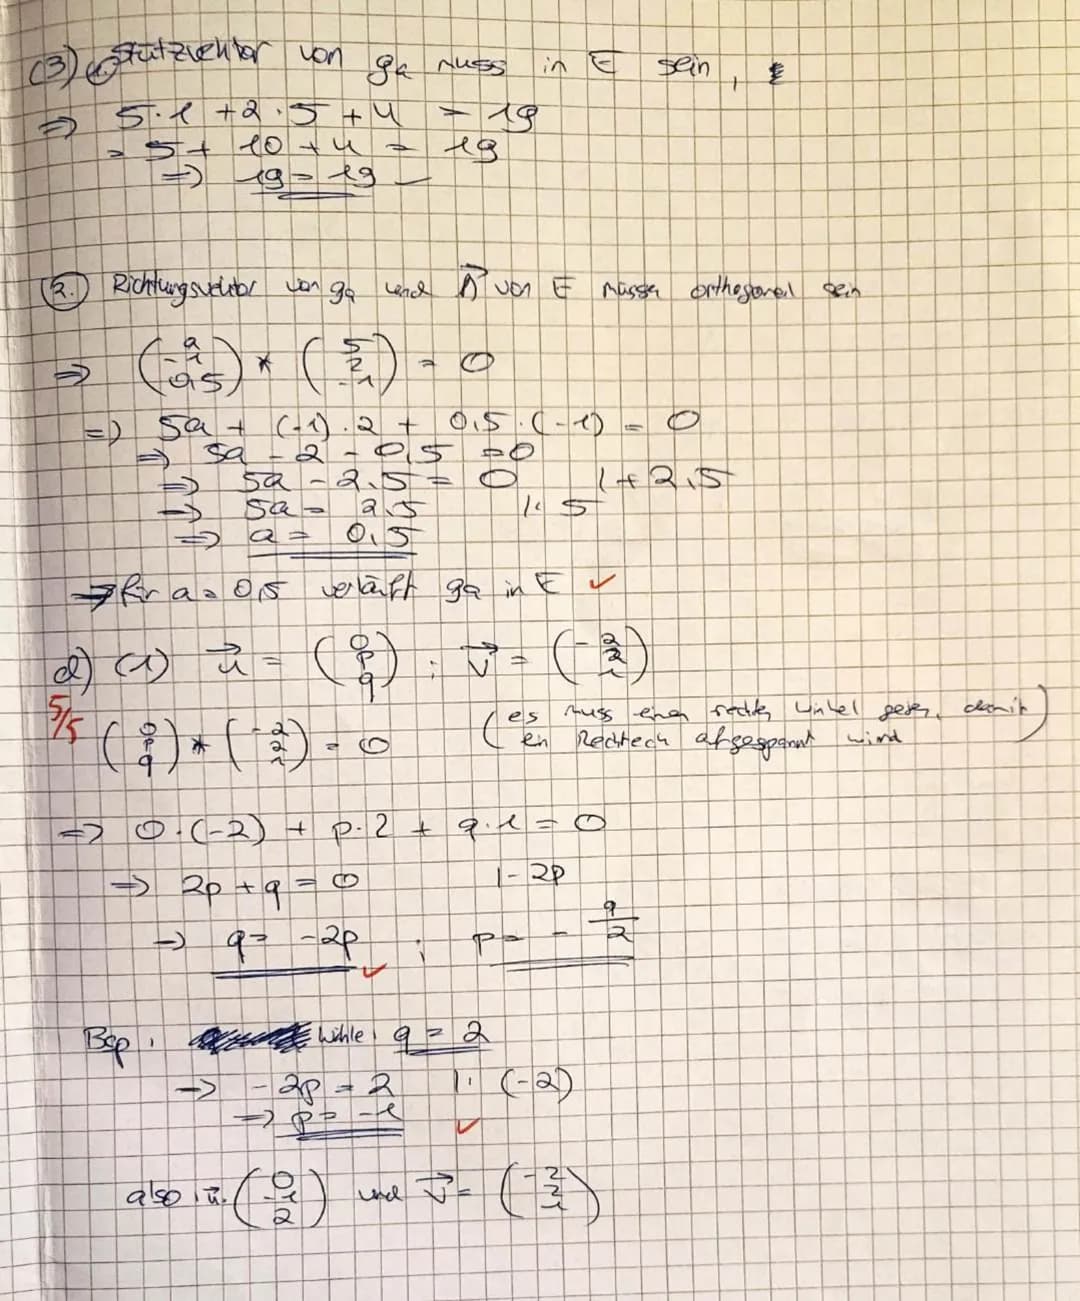 (3) 1. Stützvektor von ga muss in E sein,
⇒ 5·1 + 2·5 + 4 = 19
= 5 + 10 + 4 = 19
⇒ 19 = 19
2. Richtungsvektor von ga und n⃗ von E müssen orthogonal sein
⇒ (a -1 0,5) * (5 2 -1) = 0
⇒ 5a + (-1)·2 + 0,5·(-1) = 0
⇒ 5a - 2 - 0,5 = 0
⇒ 5a - 2,5 = 0 | + 2,5
⇒ 5a = 2,5 |: 5
⇒ a = 0,5
⇒ für a = 0,5 verläuft ga in E ✓
d) (1) u⃗ = (0 p q) ; v⃗ = (-2 2 1)
5/5
(0 p q) * (-2 2 1) = 0 (es muss einen rechten Winkel geben, damit
ein Rechteck afgespannt wird)
⇒ 0·(-2) + p·2 + q·1 = 0
⇒ 2p + q = 0 | - 2p
⇒ q = -2p ✓ ; p = - q/2
Bsp. Wähle: q = 2
⇒ -2p = 2 |: (-2)
⇒ p = -1 ✓
also u⃗ (0 -1 2) und v⃗ = (-2 2 1)